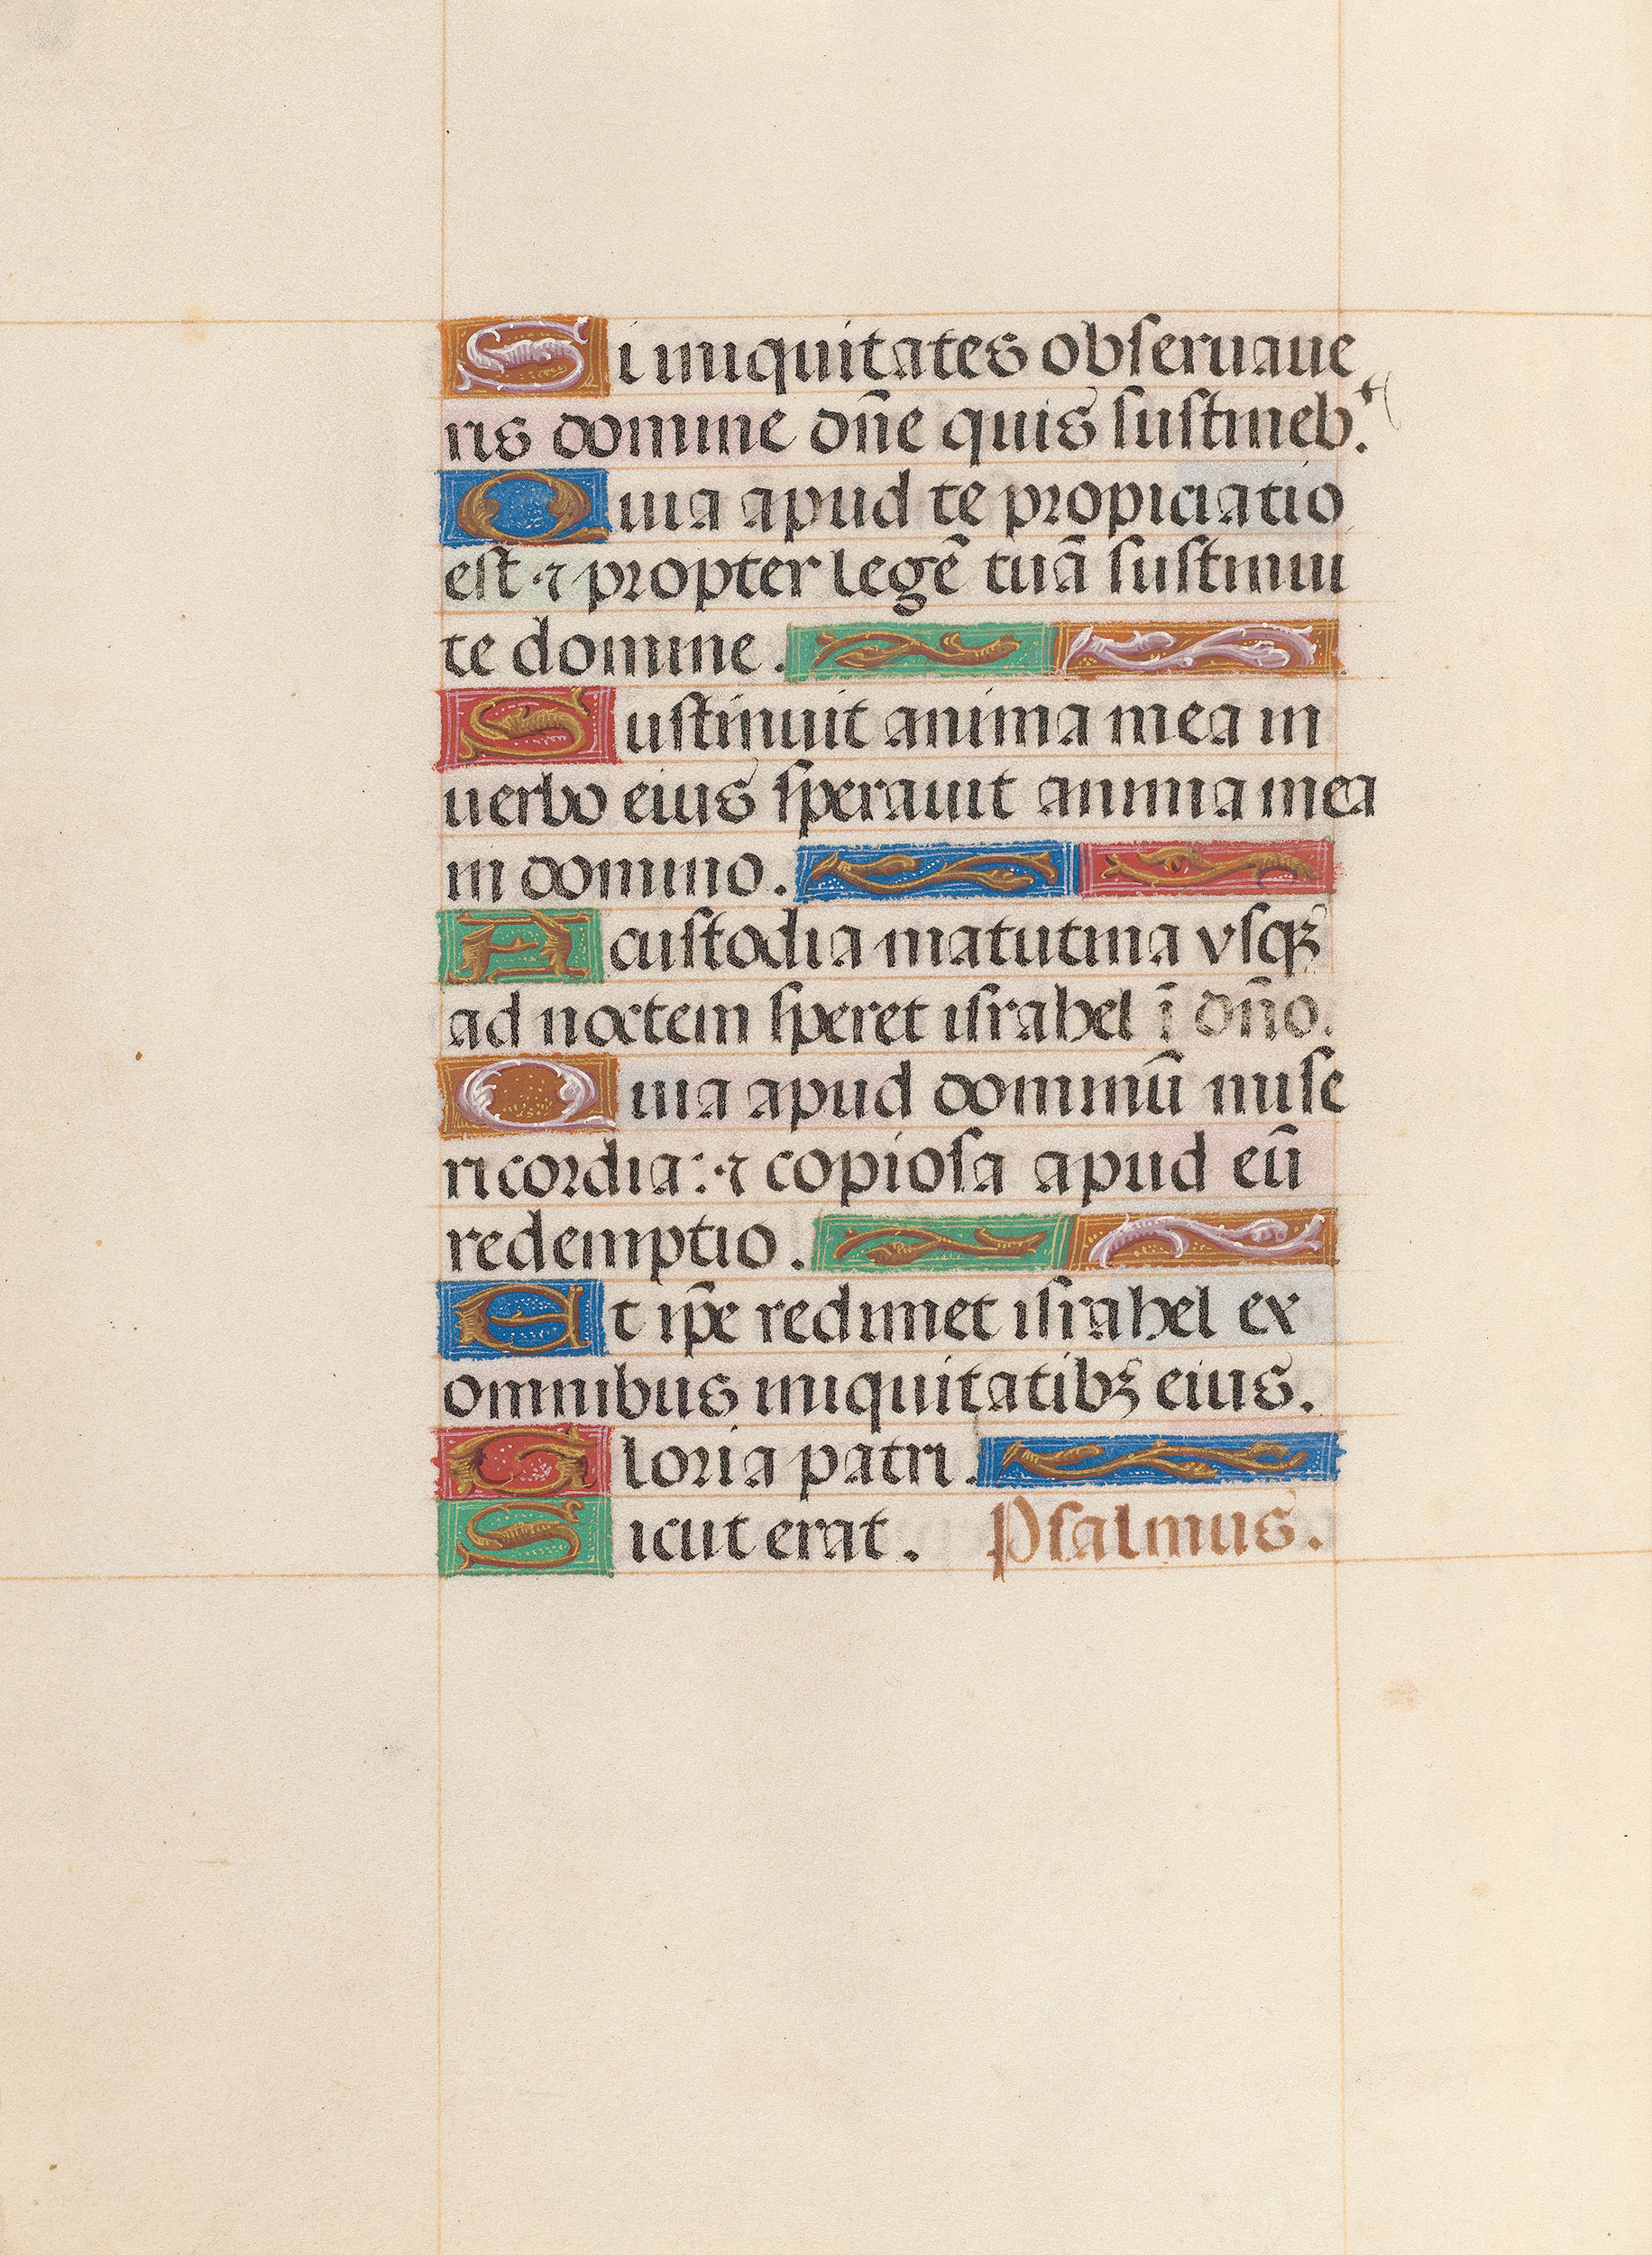 Si iniquitates obseruaue
ris domine dn̄e quis sustineb.ͭ
Quia apud te propiciatio
est ⁊ propter legē tuā sustinui
te domine.
Sustinuit anima mea in
uerbo eius sperauit anima mea
in domino.
A custodia matutina vsqꝫ
ad noctem speret israhel ī dn̄o.
Quia apud dominū mise
ricordia: ⁊ copiosa apud eū
redemptio.
Et ip̄e redimet israhel ex
omnibus iniquitatibꝫ eius.
Gloria patri.
Sicut erat. Psalmus.